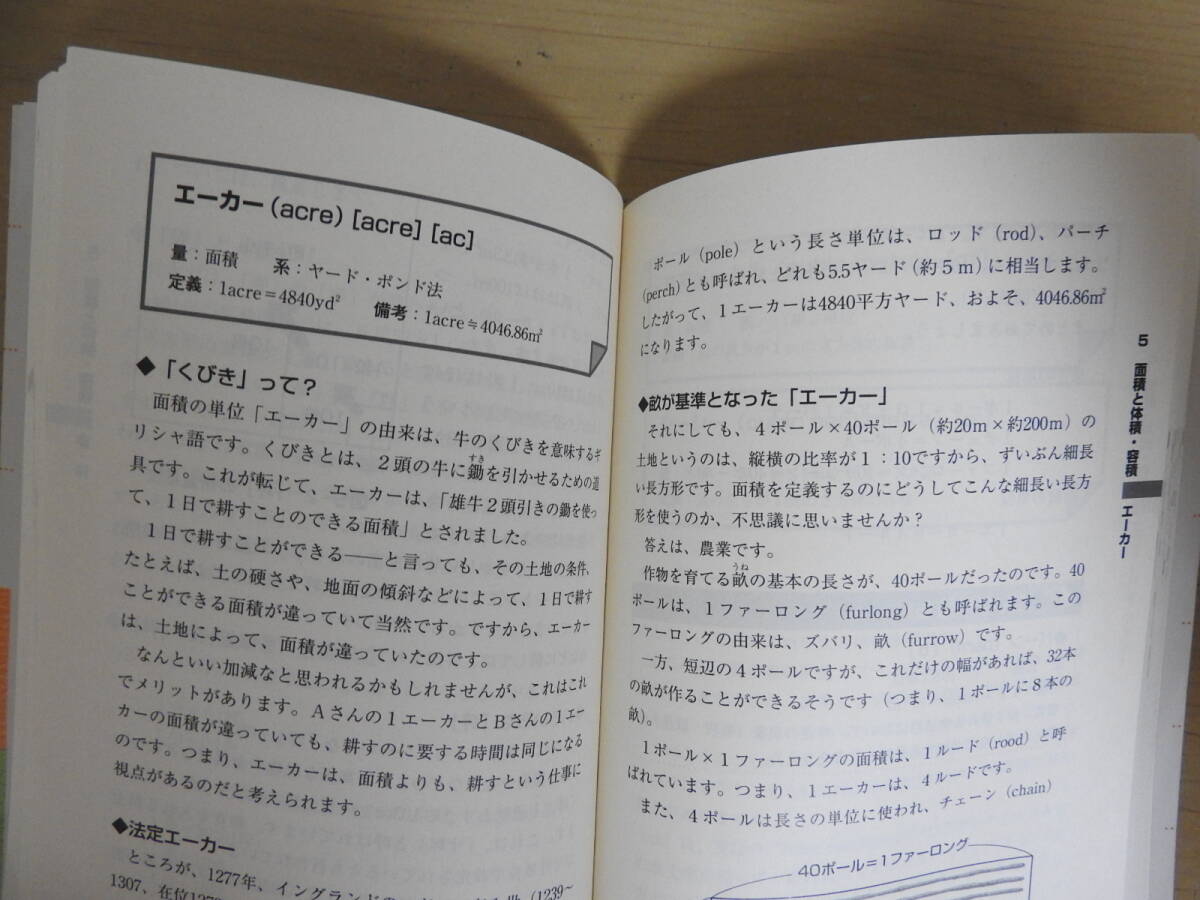 エーカー(acre)[acre][ac]
量：面積　系：ヤード・ポンド法
定義：1acre＝4840yd²　備考：1acre≒4046.86㎡
◆「くびき」って？
面積の単位「エーカー」の由来は、牛のくびきを意味するギ
リシャ語です。くびきとは、２頭の牛に鋤を引かせるための道
すき
具です。これが転じて、エーカーは、「雄牛２頭引きの鋤を使っ
て、１日で耕すことのできる面積」とされました。
１日で耕すことができる――と言っても、その土地の条件、
たとえば、土の硬さや、地面の傾斜などによって、１日で耕す
ことができる面積が違っていて当然です。ですから、エーカー
は、土地によって、面積が違っていたのです。
なんといい加減なと思われるかもしれませんが、これはこれ
でメリットがあります。Ａさんの１エーカーとＢさんの１エー
カーの面積が違っていても、耕すのに要する時間は同じになる
のです。つまり、エーカーは、面積よりも、耕すという仕事に
視点があるのだと考えられます。
◆法定エーカー
ところが、1277年、イングランドの
1307、在位127
世（1239～
ポール（pole）という長さ単位は、ロッド（rod）、パーチ
（perch）とも呼ばれ、どれも5.5ヤード（約５ｍ）に相当します。
したがって、１エーカーは4840平方ヤード、およそ、4046.86㎡
になります。
◆畝が基準となった「エーカー」
それにしても、４ポール×40ポール（約20ｍ×約200ｍ）の
土地というのは、縦横の比率が１：10ですから、ずいぶん細長
い長方形です。面積を定義するのにどうしてこんな細長い長方
形を使うのか、不思議に思いませんか？
答えは、農業です。
うね
作物を育てる畝の基本の長さが、40ポールだったのです。40
ポールは、１ファーロング（furlong）とも呼ばれます。この
ファーロングの由来は、ズバリ、畝（furrow）です。
一方、短辺の４ポールですが、これだけの幅があれば、32本
の畝が作ることができるそうです（つまり、１ポールに８本の
畝）。
１ポール×１ファーロングの面積は、１ルード（rood）と呼
ばれています。つまり、１エーカーは、４ルードです。
また、４ポールは長さの単位に使われ、チェーン（chain）
40ポール＝1ファーロング
5　面積と体積・容積　エーカー